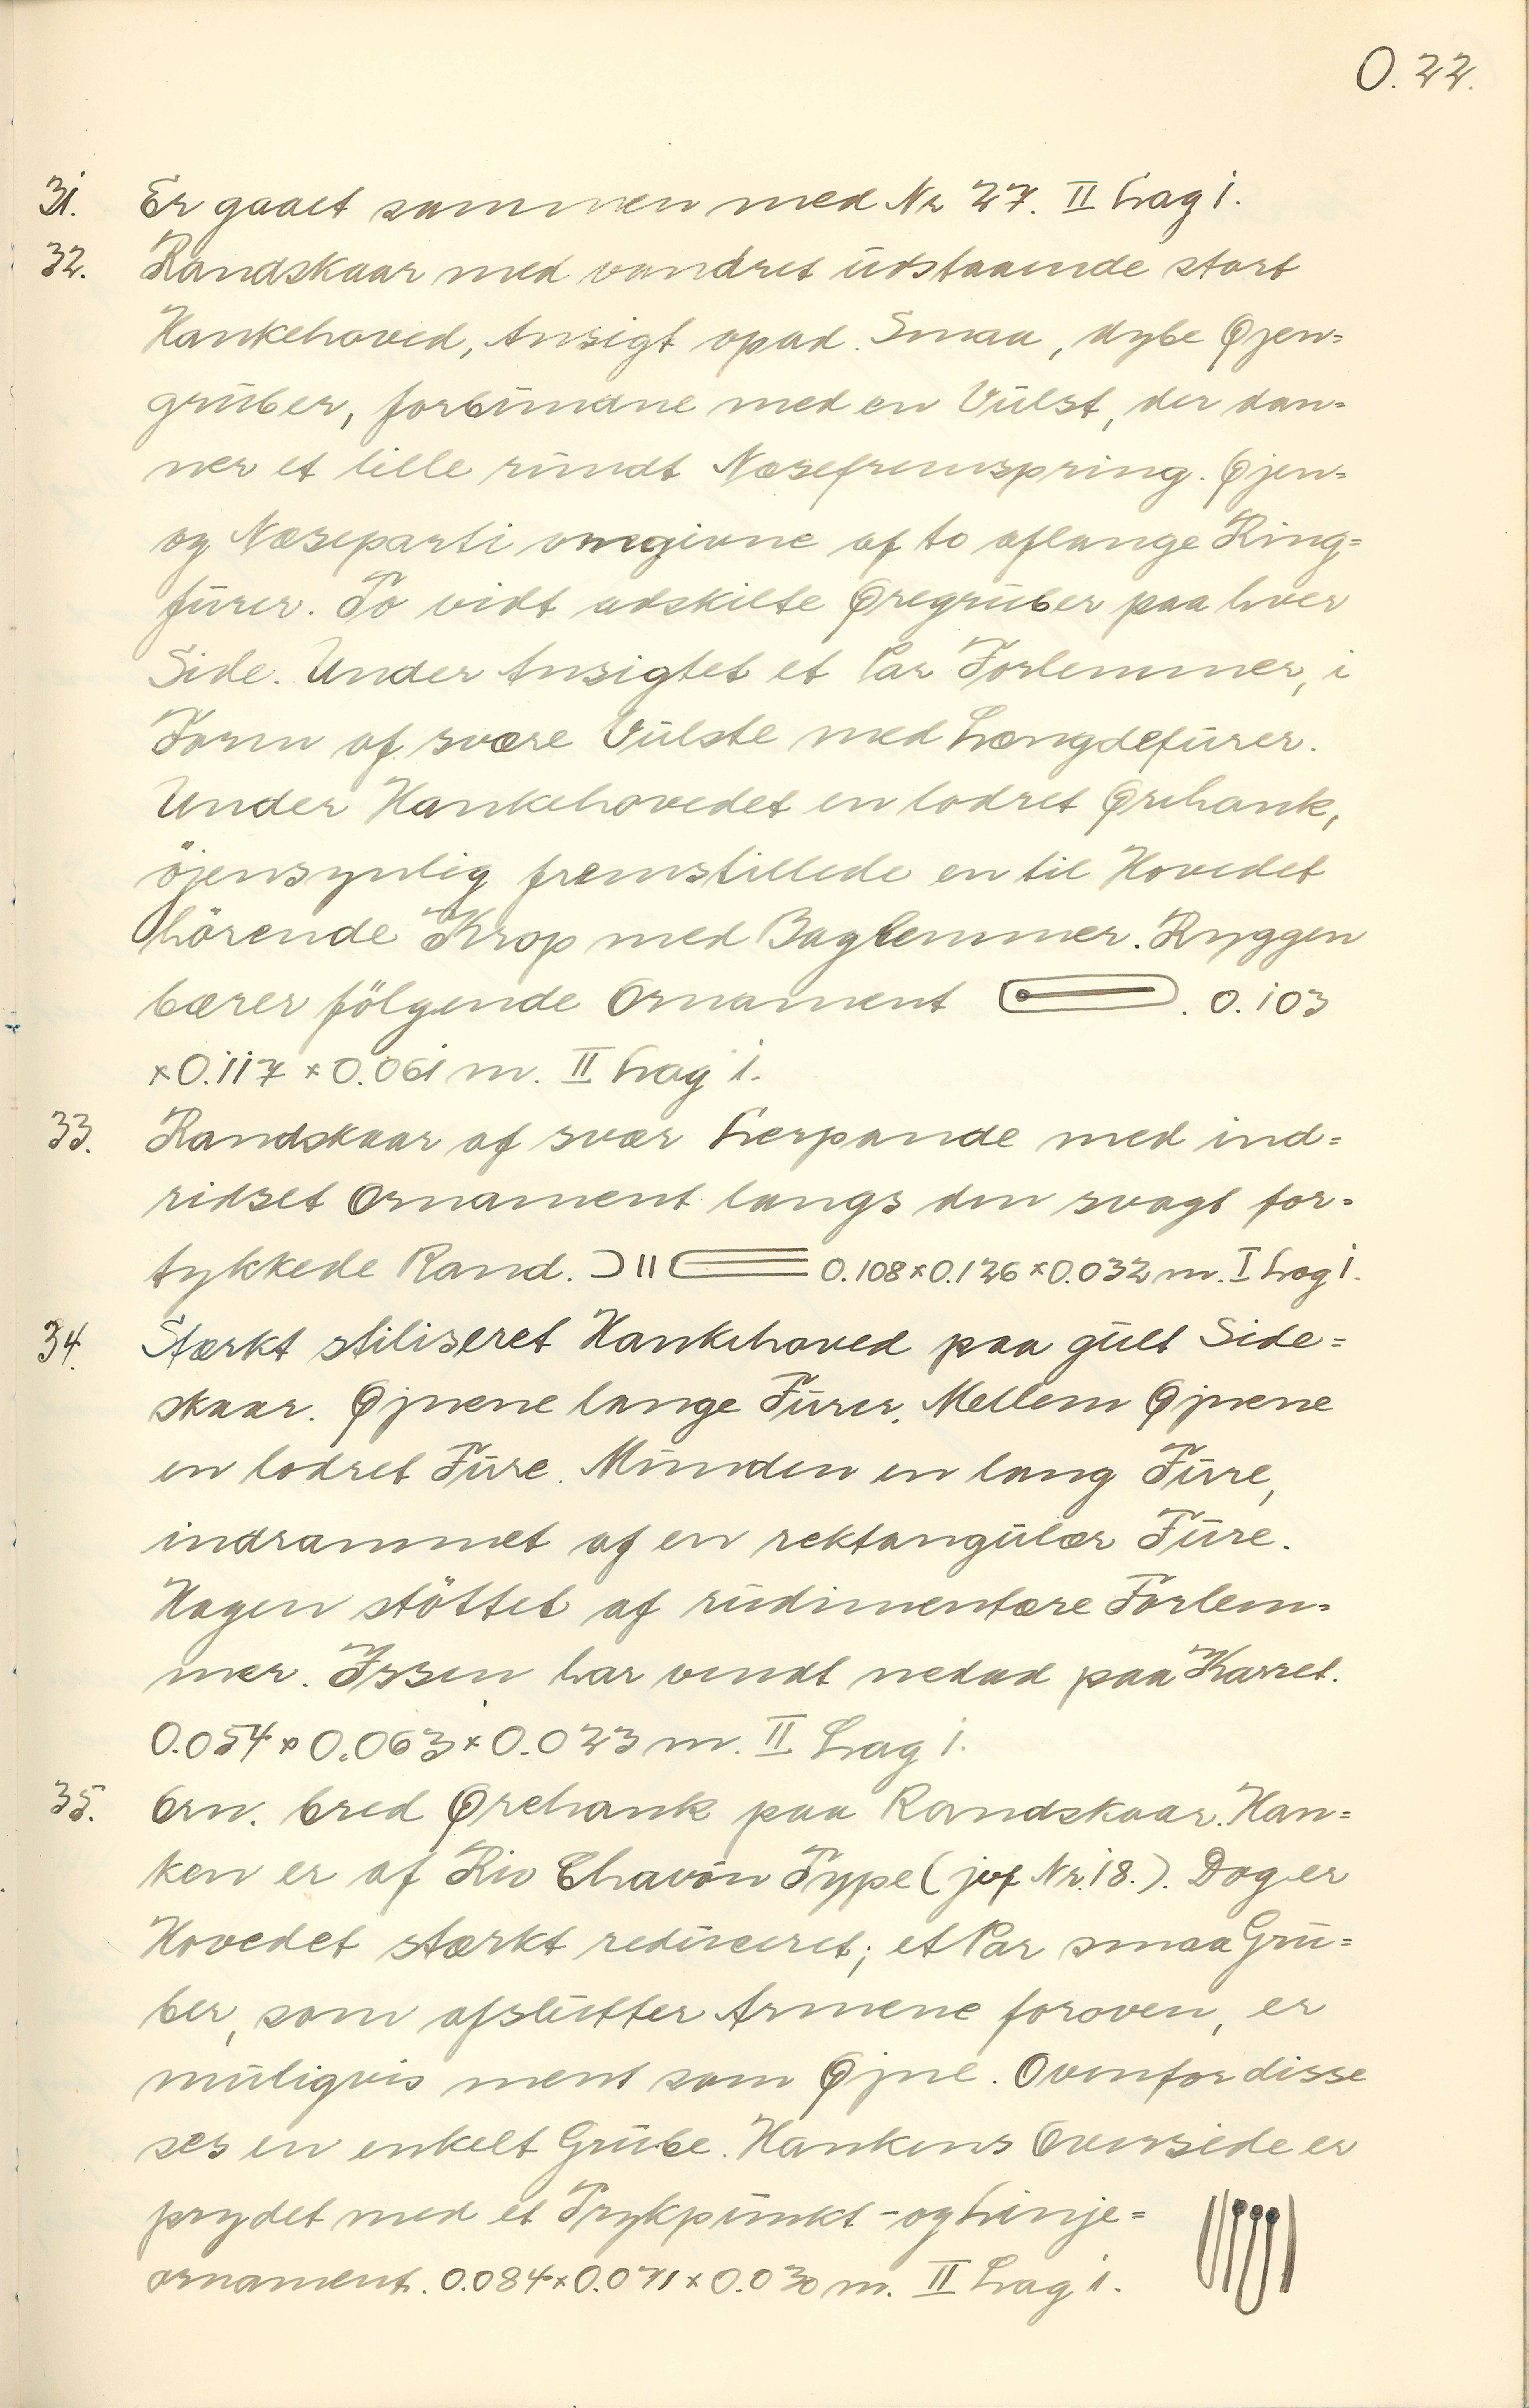 O. 22.
31. Er gaaet sammen med Nr 27. II Lag 1.
32. Randskaar med vandret udstaaende stort
Hankehoved, Ansigt opad. Smaa, dybe Øjen=
gruber, forbundne med en Vulst, der dan=
ner et lille rundt Næsefremspring. Øjen=
og Næseparti omgivne af to aflange Ring=
furer. To vidt adskilte Øregruber paa hver
Side. Under Ansigtet et Par Forlemmer, i
Form af svære Vulste med Længdefurer.
Under Hankehovedet en lodret Ørehank,
öjensynlig fremstillede en til Hovedet
hörende Krop med Baglemmer. Ryggen
bærer fölgende Ornament . 0.103
×0.117 × 0.061 m. II Lag 1.
33. Randskaar af svær Lerpande med ind=
ridset Ornament langs den svagt for=
tykkede Rand. 0.108×0.126×0.032 m. I Lag 1.
34. Stærkt stiliseret Hankehoved paa gult Side=
skaar. Øjnene lange Furer. Mellem Øjnene
en lodret Fure. Munden en lang Fure,
indrammet af en rektangulær Fure.
Hagen stöttet af rudimentære Forlem=
mer. Issen har vendt nedad paa Karret.
0.054×0.063×0.023 m. II Lag 1.
35. Orn. bred Ørehank paa Randskaar. Han=
ken er af Rio Chavón Type (jvf Nr. 18.). Dog er
Hovedet stærkt reduceret; et Par smaa Gru=
ber, som afslutter Armene foroven, er
muligvis ment som Øjne. Ovenfor disse
ses en enkelt Grube. Hankens Overside er
prydet med et Trykpunkt- og Linje=
ornament. 0.084×0.071×0.030 m. II Lag 1.